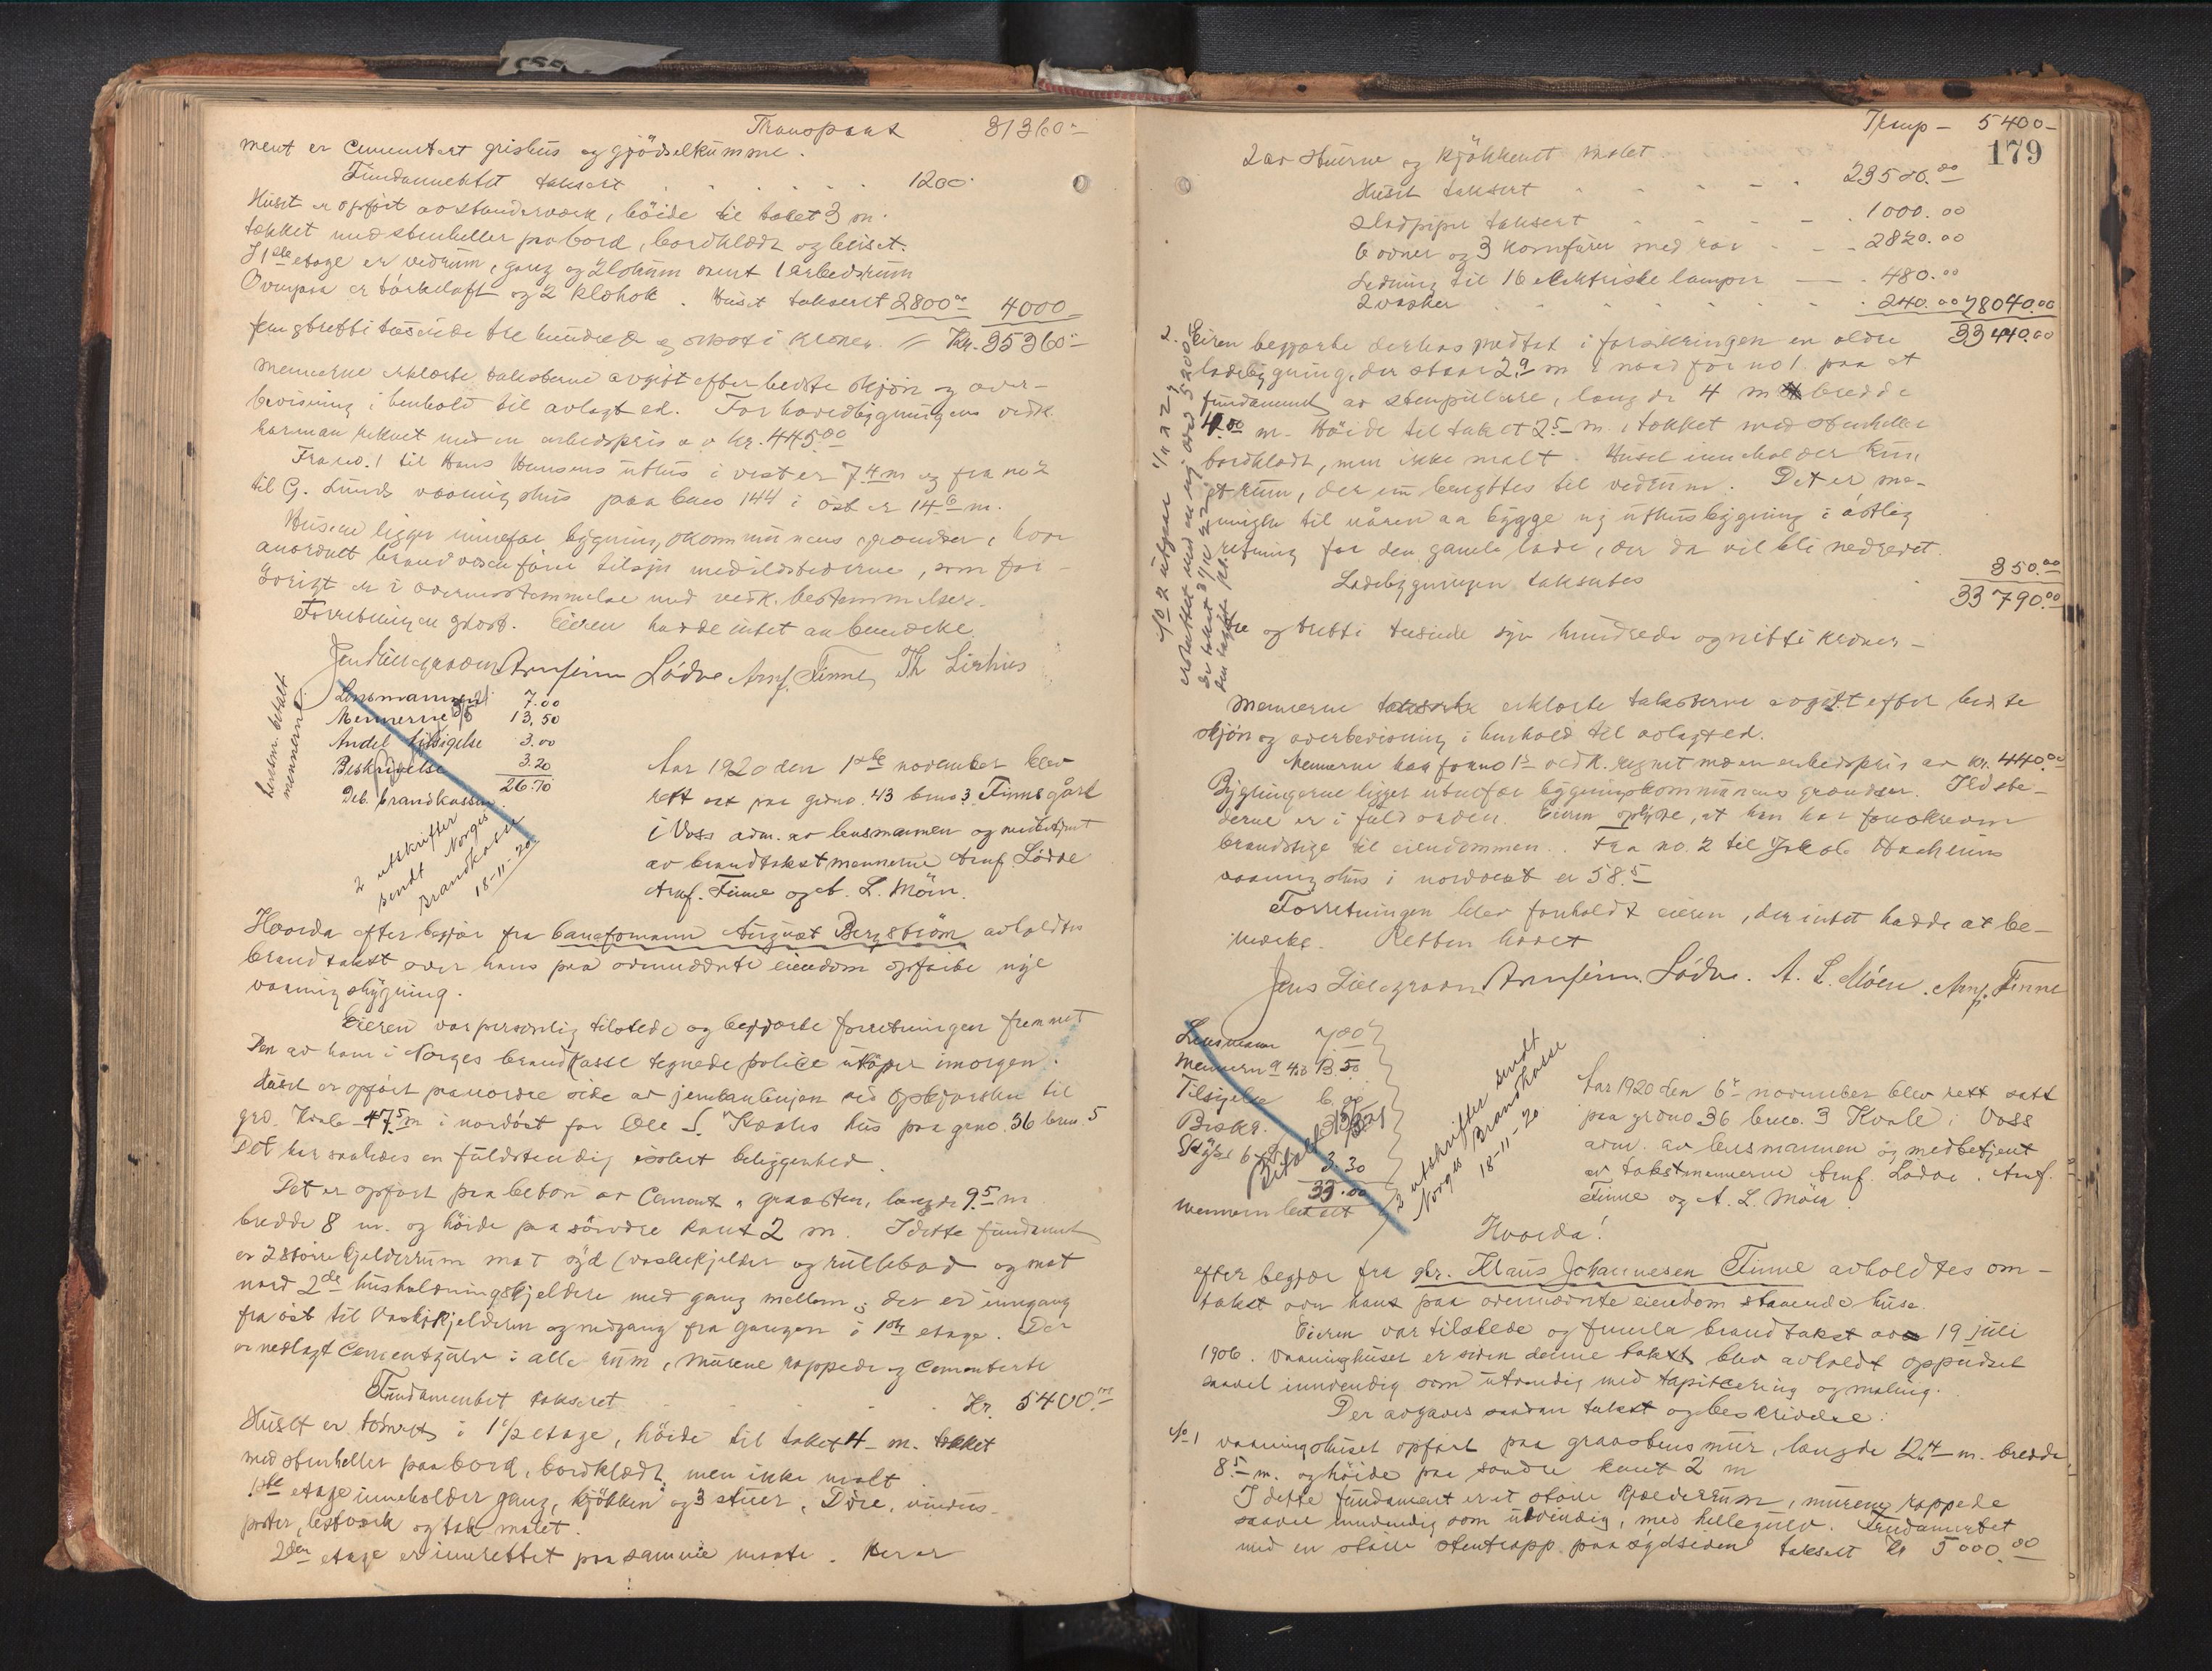 Transport 31360.-
ment er cementert grishus og gjödselkumme.
Fundamentet taksert 1200.
Huset er opfört av standerverk, höide til taket 3 m.
tækket med stenheller paa bord, bordklædt og beiset.
I 1ste etage er vedrum, gang og 2 lokum samt 1 arbeidsrum
Ovenpaa er törkeloft og 2 Klæhok. Huset taksert 2800.- 4000
femogtretti tusinde tre hundrede og seksti kroner. = Kr. 35360.-
Mennerne erklærte taksterne avgit efter bedste skjön og over-
bevisning i henhold til avlagt ed. For hovedbygningens vedk.
har man reknet med en arbeidspris av kr. 445.00
Fra no. 1 til Hans Hansens uthus i vest er 7.4 m og fra no 2
til G. Lunds vaaningshus paa bno 144 i öst er 14.6 m.
Husene ligger innefor bygningskommunens grændser, hvor
anordnet brandvesen förer tilsyn med ildstederne, som for-
övrigt er i overensstemmelse med vedk. bestemmelser.
Forretningen sluttet. Eieren hadde intet at bemerke.
Jens Lillegraven Arnfinn Lödve Arnf. Finne Th Lirhus
Lensmannen 7.00
Mennerne 13.50
Andel tilsigelse 3.00
Beskrivelse 3.20
26.70
Deb. brandkassen.
lensm. betalt
mennerne
2 utskrifter
sendt Norges
Brandkasse
18-11-20
Aar 1920 den 1ste november blev
rett sat paa grdno. 43 bno 3 Finnegård
i Voss adm. av lensmannen og medbetjent
av brandtakstmennerne Arnf. Lödve
Arnf. Finne og A. L. Möen.
Hvorda efter begjær fra baneformann August Bergström avholdtes
brandtakst over hans paa ovennævnte eiendom opförte nye
vaaningsbygning.
Eieren var personlig tilstede og begjærte forretningen fremmet
Den av ham i Norges brandkasse tegnede police utlöper imorgen.
Huset er opfört paa nordre side av jernbanelinjen ved opkjörselen til
grd. Kvale 47.5 m i nordöst for Ole S. Kvales hus paa grno. 36 bno. 5
Det har saaledes en fuldstendig isolert beliggenhed.
Det er opfört paa beton av Cement & graasten, længde 9.5 m
bredde 8 m. og höide paa söndre kant 2 m. I dette fundament
er 2 större kjelderrum mot syd (vaskekjelder og rullebod og mot
nord 2de husholdningskjeldere med gang mellem; der er inngang
fra öst til Vaskekjelderen og nedgang fra gangen i 1ste etage. Der
er nedlagt Cementgulv i alle rum, murene rappede og cementerte
Fundamentet taksert Kr. 5400.-
Huset er tömret i 1 1/2 etage, höide til taket 4 - m. tækket
med stenheller paa bord, bordklædt, men ikke malt.
1ste etage inneholder gang, kjökken og 3 stuer. Döre, vindus-
poster, listverk og tak malet.
2den etage er innrettet paa samme maate. Her er
Transp - 5400 -
179
2 av stuerne og kjökkenet malet.
Huset taksert 23500.00
2 ladpiper taksert 1000.00
6 ovner og 3 komfurer med rör 2820.00
Ledning til 16 elektriske lamper 480.00
2 vasker 240.00 28040.00
33440.00
2. Eieren begjærte derhos medtat i forsikringen en eldre
ladebygning, der staar 2.9 m i nord for no 1. paa et
fundament av stenpillere, længde 4 m bredde
4.00 m. Höide til taket 2.5 m, tækket med stenheller
bordklædt, men ikke malt. Huset inneholder kun
et rum, der nu benyttes til vedrum. Det er me-
ningen til våren aa bygge ny uthusbygning i östlig
retning for den gamle lade, der da vil bli nedrevet.
Ladebygningen taksertes 350.00
33790.00
tre og tretti tusinde syv hundrede og nitti kroner -
No 2 utgaar 1/11 1922
erstattet med en ny
Mennerne erklærte taksterne avgit efter bedste
skjön og overbevisning i henhold til avlagt ed.
Mennerne har for no 1s vedk. regnet med en arbeidspris av kr. 440.00
Bygningerne ligger utenfor bygningskommunens grændser. Ildste-
derne er i fuld orden. Eieren oplyste, at han har forskreven
brandstige til eiendommen. Fra no. 2 til Jakob Wæhlums
vaaningshus i nordvest er 58.5
Forretningen blev foreholdt eieren, der intet hadde at be-
merke. Retten hævet
Jens Lillegraven Arnfinn Lödve. A. L. Möen. Arnf. Finne
Lensmann 7.00
Mennern à 4.50 13.50
Tilsigelse 6.00
Beskr.
Skyss
3.30
33.00
Betalt
Mennern betalt
2 utskrifter sendt
Norges Brandkasse
18-11-20
Aar 1920 den 6te november blev rett satt
paa grdno 36 bno. 3 Kvale i Voss
adm. av lensmannen og medbetjent
av takstmennerne Arnf. Lödve, Arnf.
Finne og A. L. Möen.
Hvorda!
efter begjær fra gbr. Klaus Johannesen Finne avholdtes om-
takst over hans paa ovennævnte eiendom staaende huse.
Eieren var tilstede og fremla brandtakst av 19 juli
1906. Vaaningshuset er siden denne takst blev avholdt oppudset
saavel innvendig som utvendig med tapitsering og maling.
Der avgaves saadan takst og beskrivelse:
No 1 Vaaningshuset opfört paa graastensmur, længde 12.4 m. bredde
8.5 m. og höide paa söndre kant 2 m
I dette fundament er et större kjælderrum, murene rappede
saavel innvendig som utvendig, med hellegulv. Fundamentet
med en större stentrapp paa sydsiden taksert Kr 5000.00